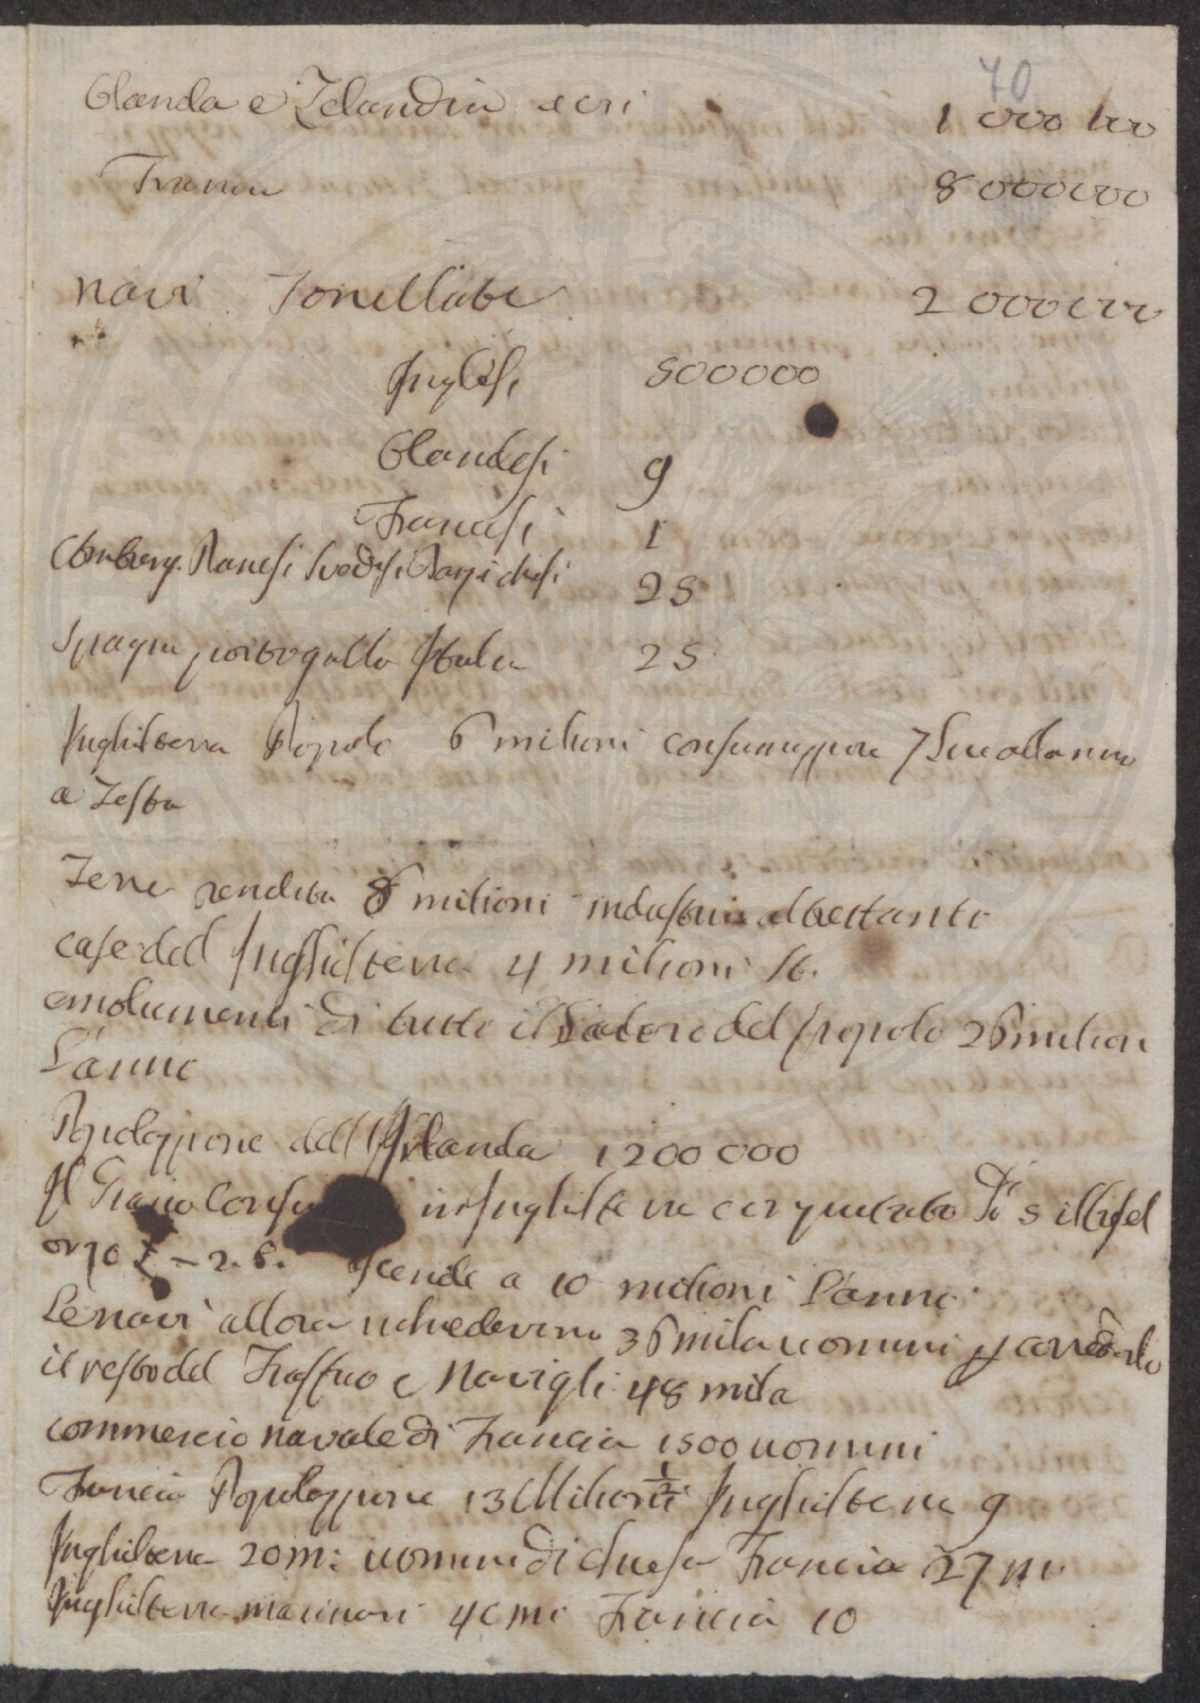 70
Olanda e Zelandia acri 1 000 000
Francia 8 000000
navi Tonellate 2 000000
Inglesi 500000
Olandesi 9
Francesi 1
Amburg. Danesi Svedesi 25
Spagna portogallo Italia 25
Inghilterra Popolo 6 milioni consumazione 7 Lire all anno
a Testa
Terre rendita 8 milioni industria altrettanto
case del Inghilterra 4 milioni St.
emolumenti di tutto il del popolo 26 milioni
L'anno
Popolazzione dell Irlanda 1200 000
Il Grano in Inghilterra
orzo 2. 6. a 10 milioni L'anno
Le navi allora richiedevano 36 mila uomini
il resto del Traffico e Navigli 48 mila
commercio navale di Francia 1500 uomini
Francia Popolazzione 13 Milioni 1/2 Inghilterra 9
Inghilterra 20 m: uomini di chiesa Francia 27 m
Inghilterra marinari 40 mi Francia 10